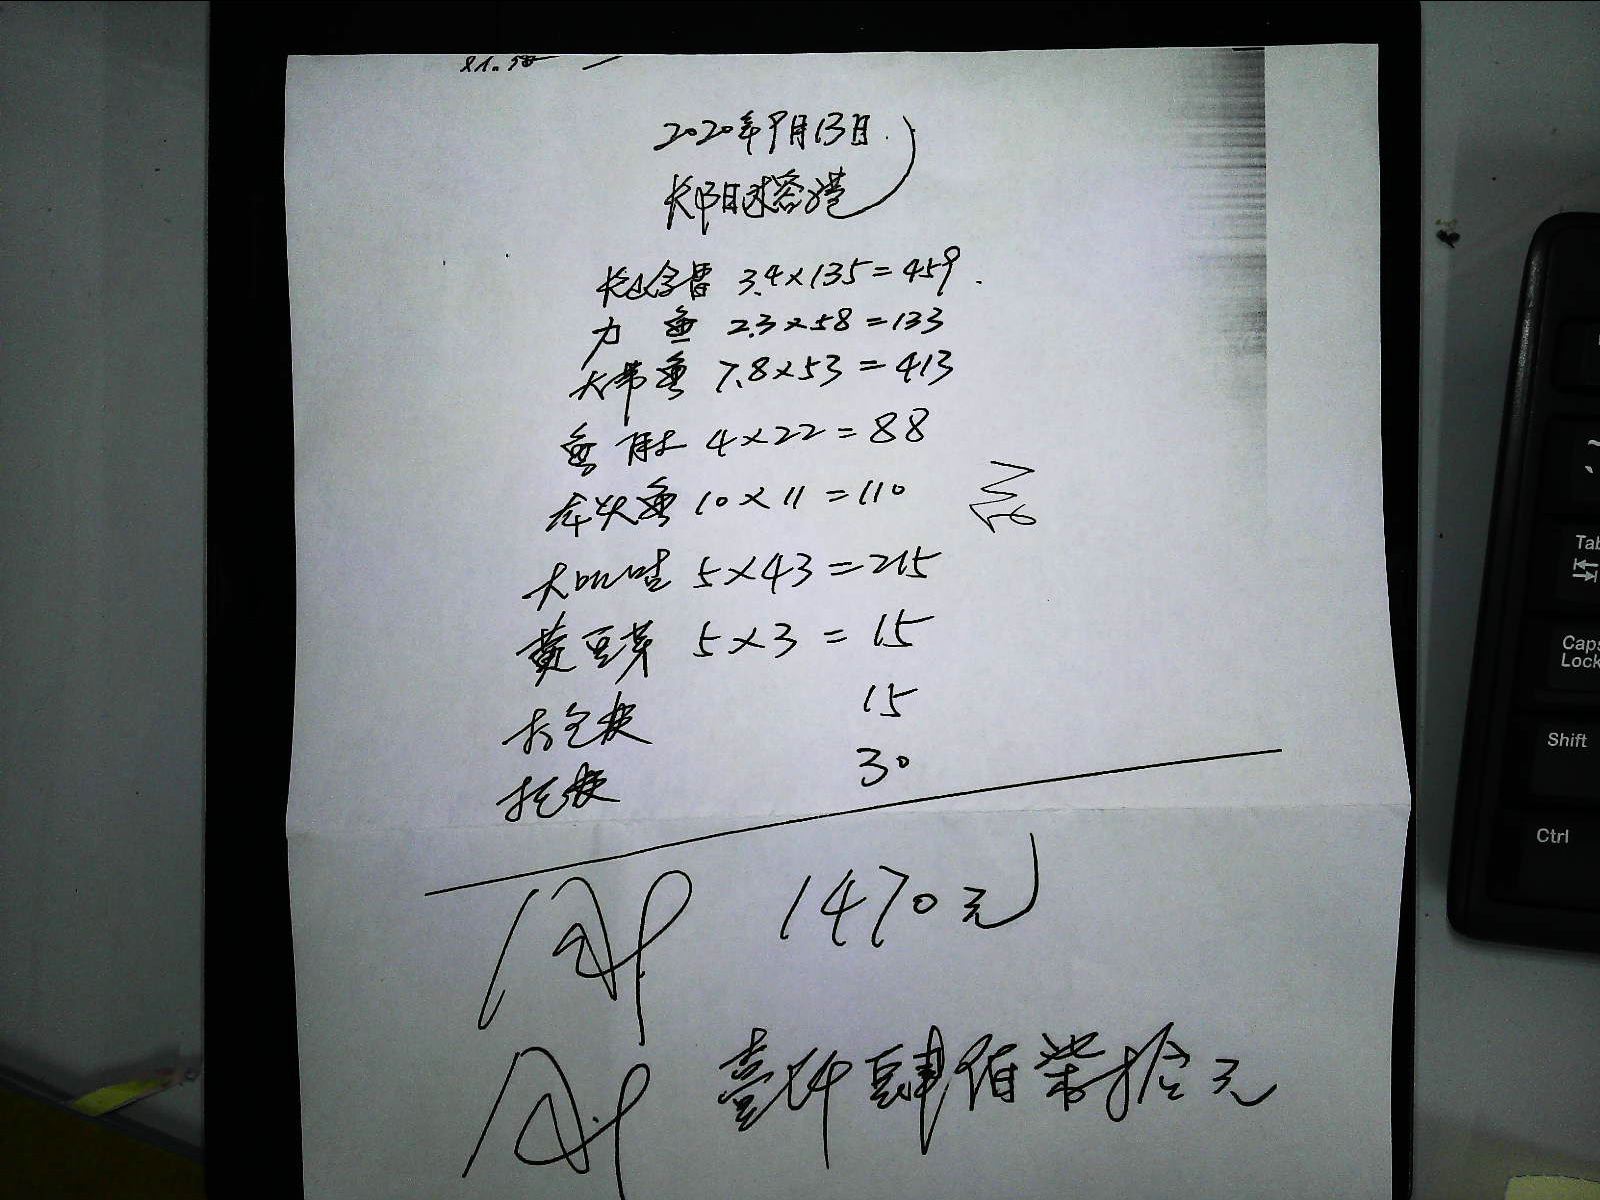 2020年9月13日
3.4×135=459.
力鱼 2.3×58=133
大带鱼 7.8×53=413
鱼肚 4×22=88
鱼 10×11=110
大 5×43=215
黄豆芽 5×3=15
打包费 15
托费 30
1470元
壹仟肆佰柒拾元
Tab
Caps Lock
Shift
Ctrl